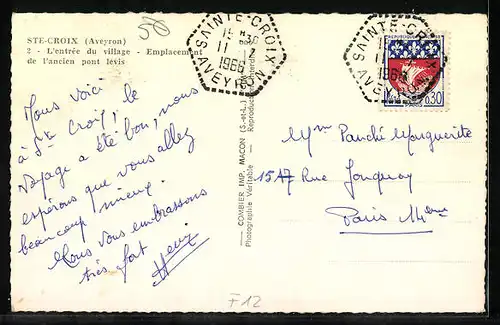 50
STE-CROIX (Aveyron)
2 - L'entrée du village - Emplacement
de l'ancien pont levis
SAINTE-CROIX
15 H30
11 - 12
1966
AVEYRON
SAINTE-CROIX
15 H
11
1966
AVEYRON
REPUBLIQUE
0,30
Nous voici
à Ste Croix, le
voyage a été bon, nous
espérons que vous allez
beaucoup mieux.
Nous vous embrassons
très fort
COMBIER IMP. MACON (S.-et-L.)
Photographie Véritable — Reproduction
Mme Panché Marguerite
Rue Jonquoy
Paris 14eme
F12